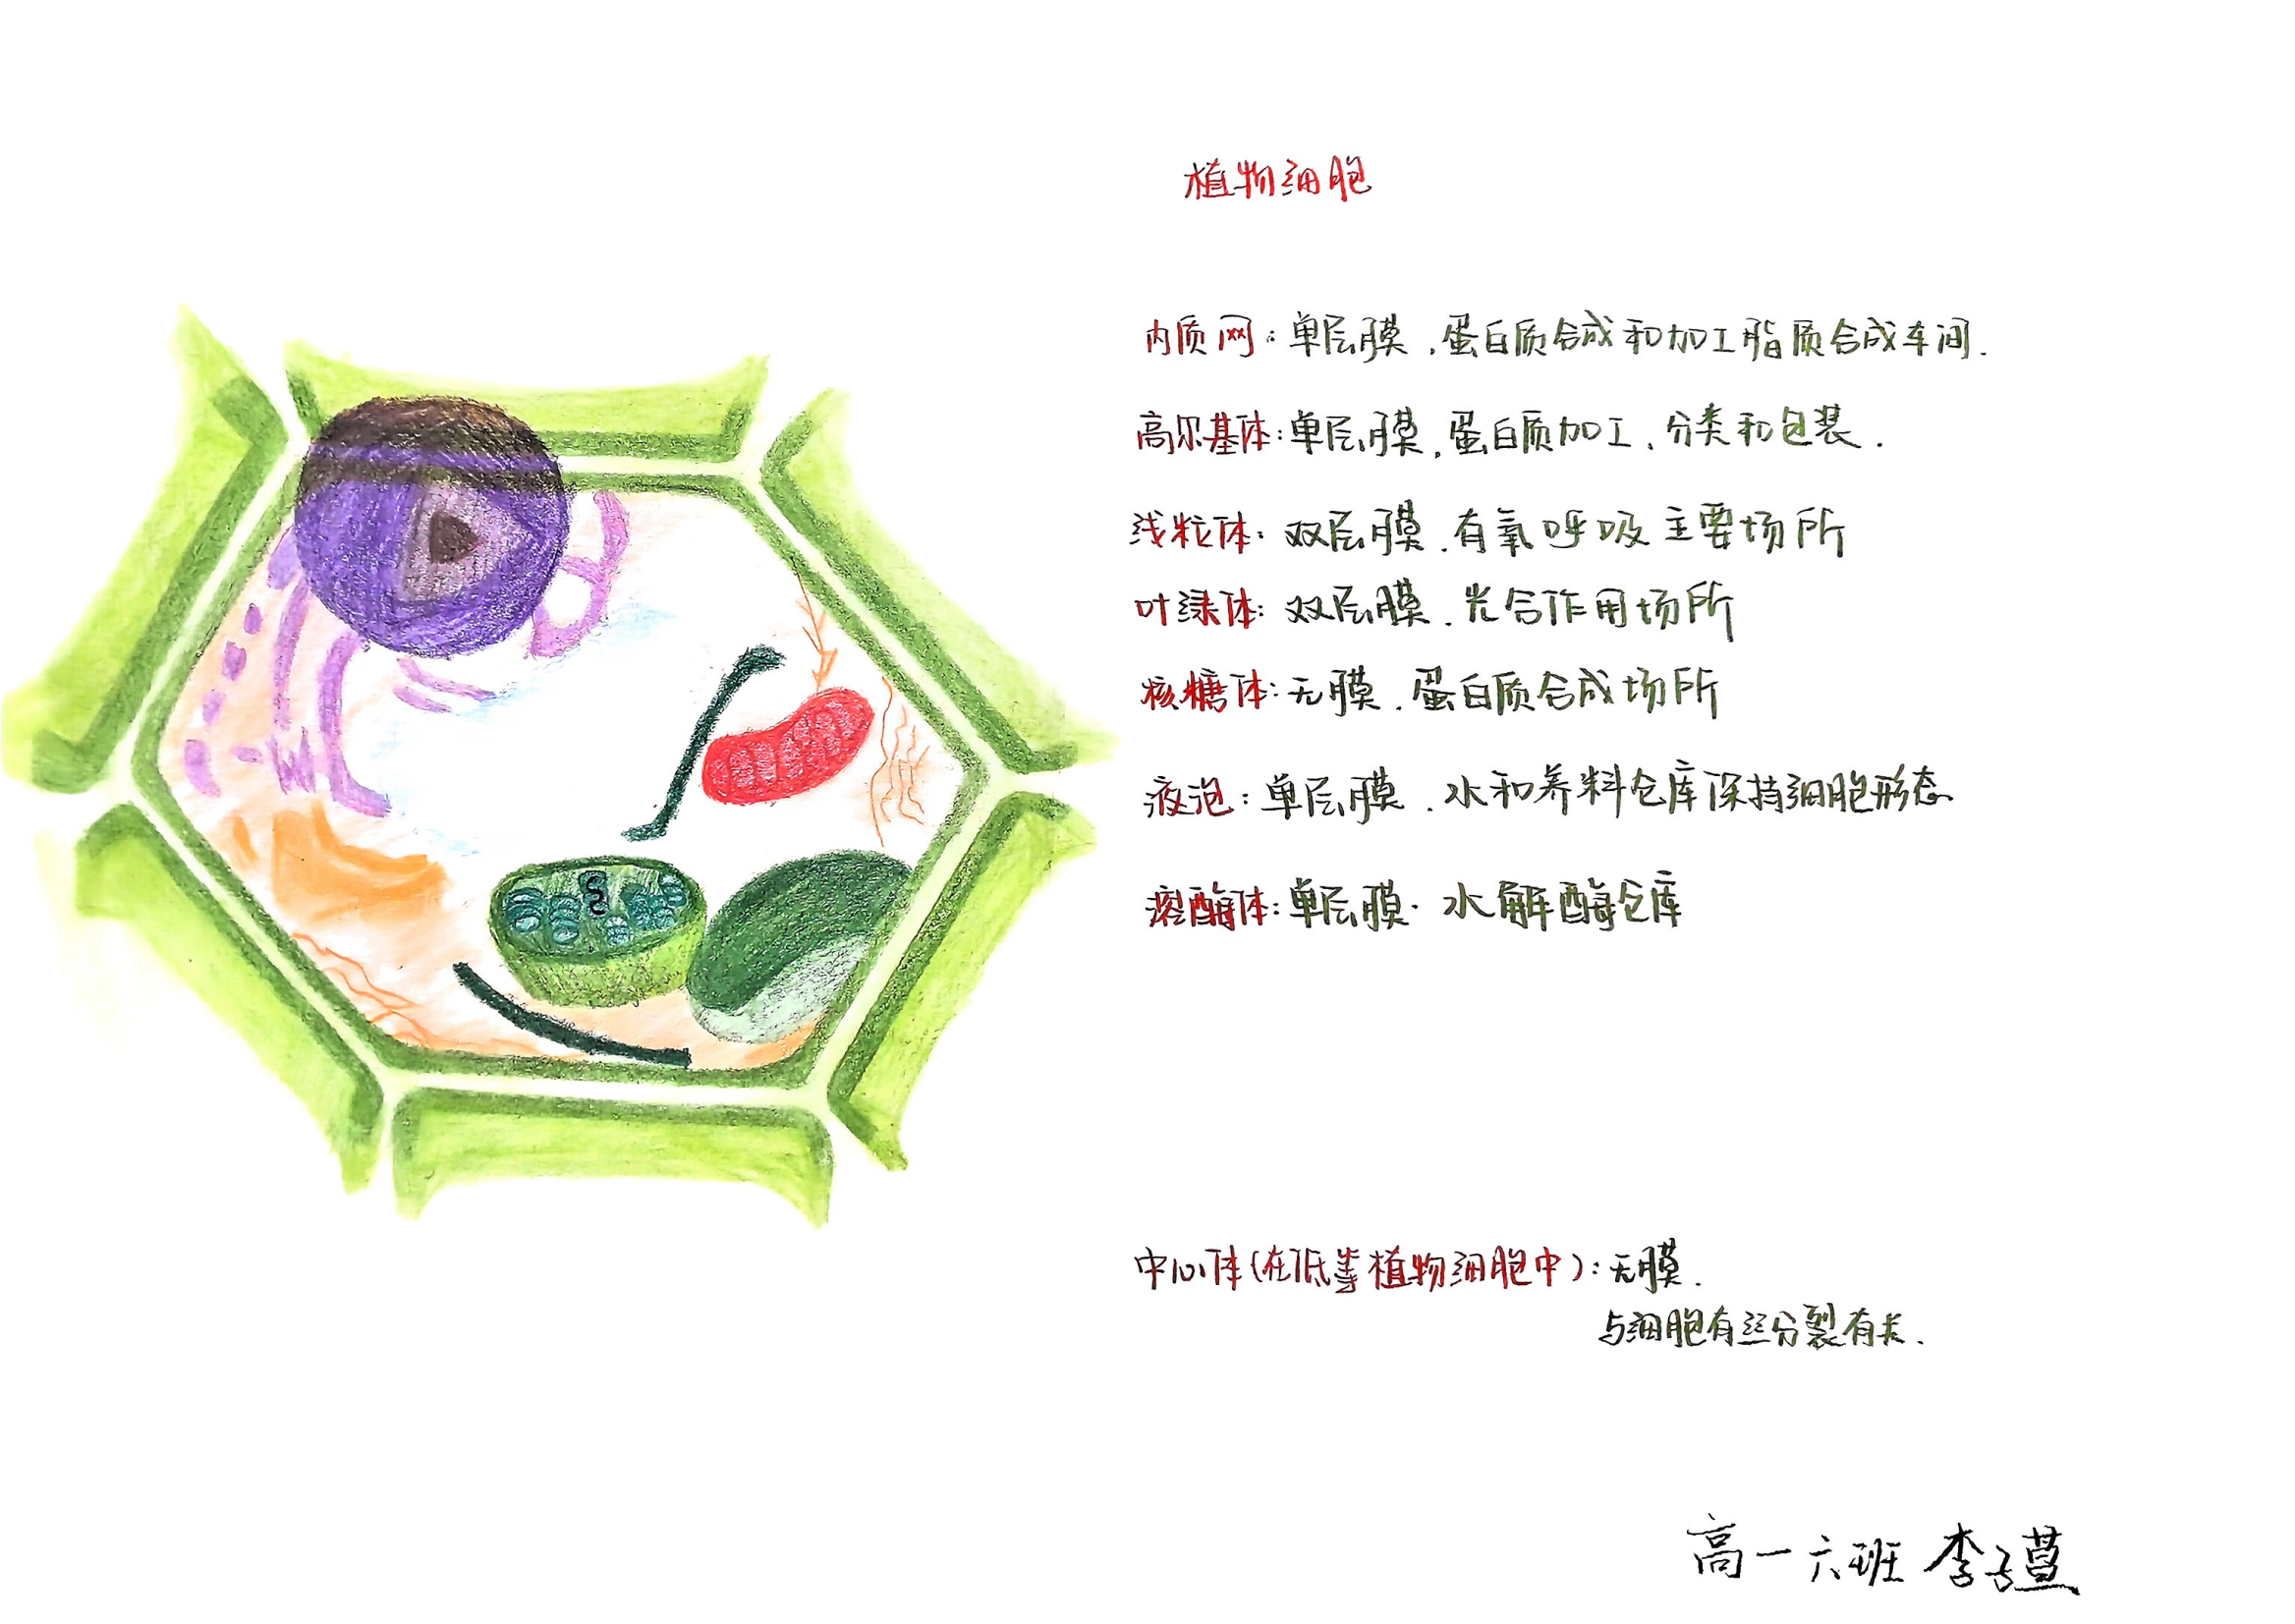 植物细胞
内质网：单层膜．蛋白质合成和加工脂质合成车间．
高尔基体：单层膜．蛋白质加工、分类和包装．
线粒体：双层膜．有氧呼吸主要场所
叶绿体：双层膜．光合作用场所
核糖体：无膜．蛋白质合成场所
液泡：单层膜．水和养料仓库保持细胞形态
溶酶体：单层膜·水解酶仓库
中心体（在低等植物细胞中）：无膜．
与细胞有丝分裂有关．
高一六班 李子萱